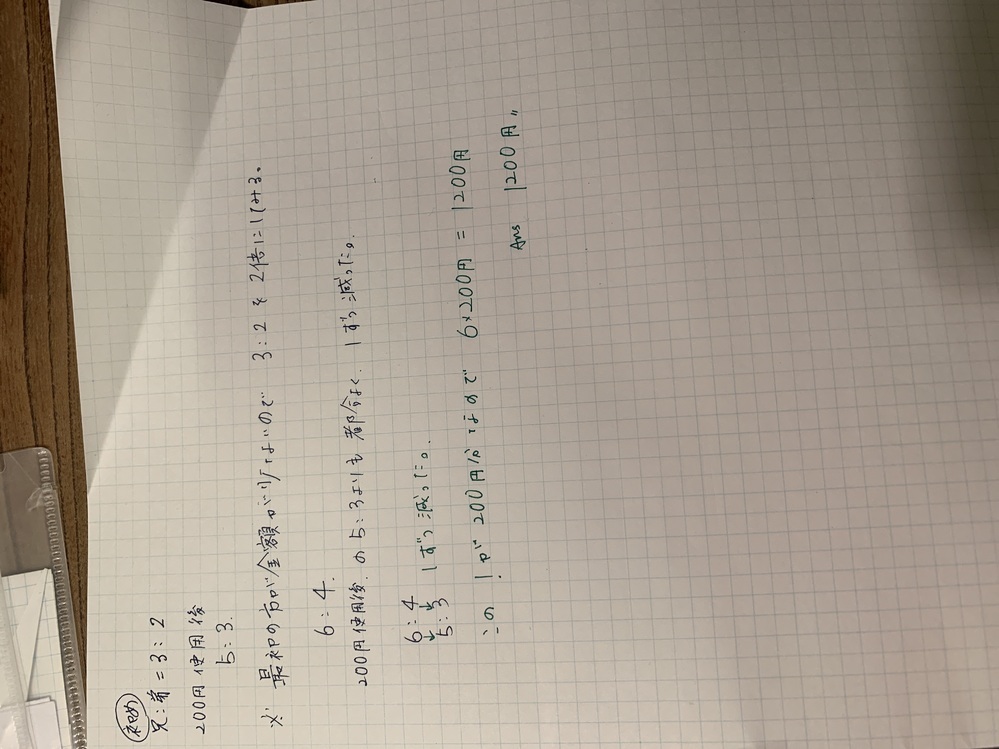 初め
兄:弟=3:2
200円使用後
5:3.
※ 最初の方が金額が少ないので 3:2を2倍にしてみる。
6:4.
200円使用後の5:3よりも都合よく、1ずつ減った。
6:4
5:3 1ずつ減った。
この1が200円分なので 6×200円=1200円
Ans 1200円〃